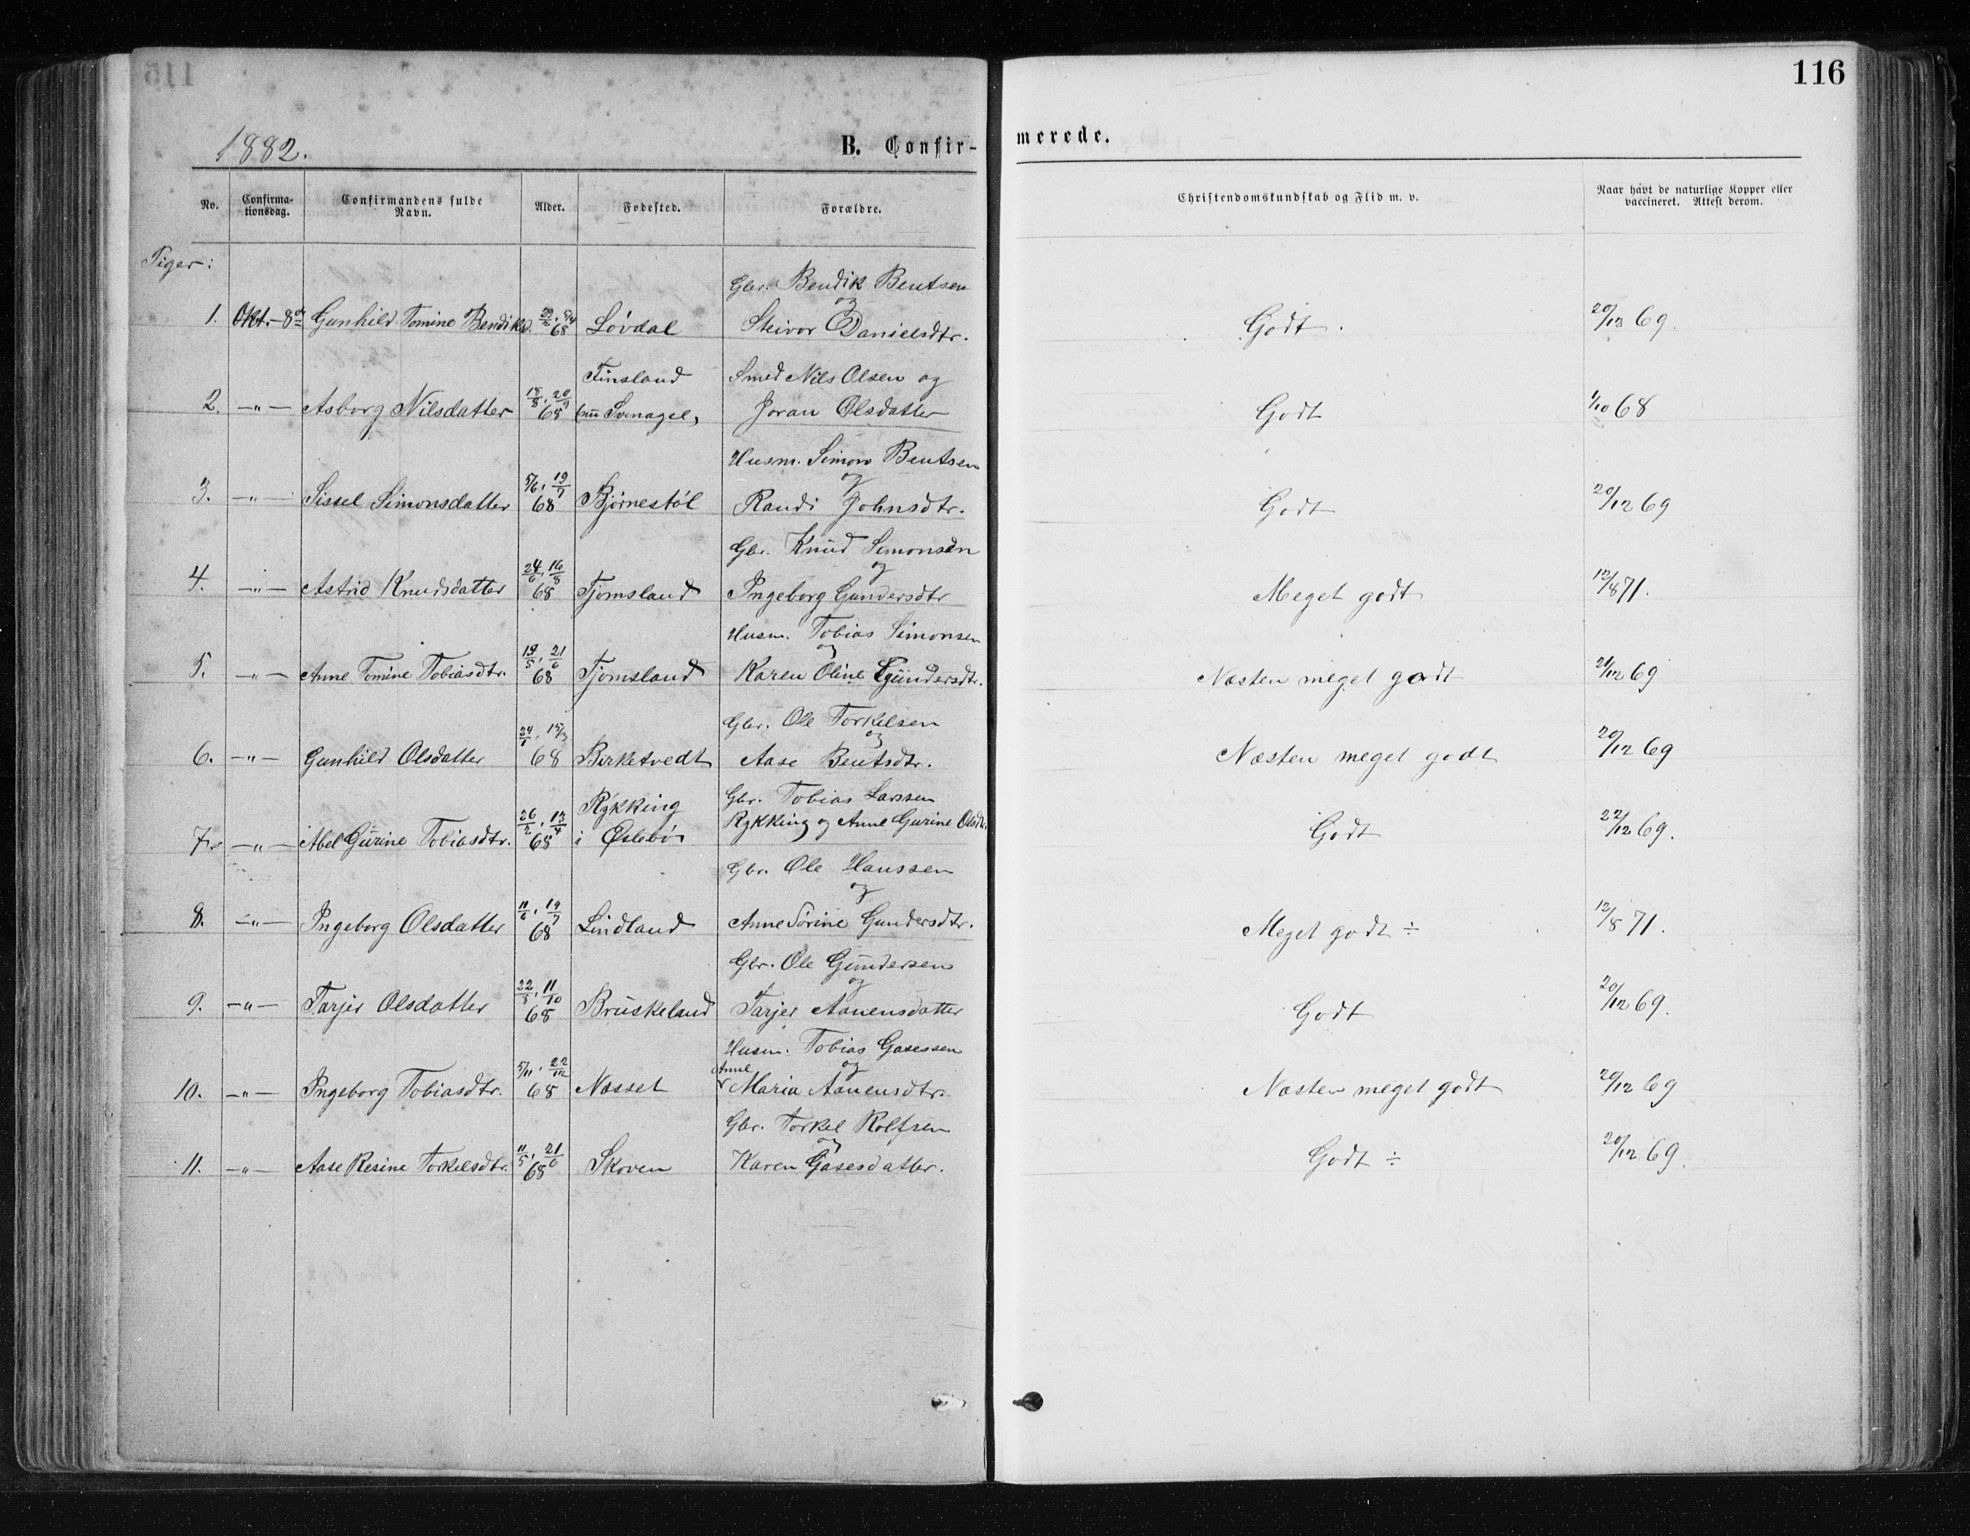 116
1882.
B. Confir-
merede.
No.
Confirma-
tionsdag.
Confirmandens fulde
Navn.
Alder.
Fødested.
Forældre.
Christendomskundskab og Flid m. v.
Naar havt de naturlige Kopper eller
vaccineret. Attest derom.
Piger:
Gbr. Bendik Bentsen
og
1. Okt. 8de Gunhild Tomine Bendiksd. 68 Løvdal Steivor Danielsdtr. Godt. 20/12 69.
Finsland Smed Nils Olsen og
2. -"- Asborg Nilsdatter 18/8, 20/9 68 (nu Svenagel) Joran Olsdatter Godt 1/10 68
Husm. Simon Bentsen
og
3. -"- Sissel Simonsdatter 5/6, 19/7 68 Bjørnestøl Randi Johnsdtr. Godt 20/12 69
Gbr. Knud Simonsen
og
4. -"- Astrid Knudsdatter 24/6, 16/8 68 Tjomsland Ingeborg Gundersdtr Meget godt 12/8 71.
Husm. Tobias Simonsen
og
5. -"- Anne Tomine Tobiasdtr. 19/5, 21/6 68 Tjomsland Karen Oline Gundersdtr. Næsten meget godt 21/12 69
Gbr. Ole Torkelsen
og
6. -"- Gunhild Olsdatter 24/1, 15/3 68 Birketvedt Aase Bentsdtr. Næsten meget godt 20/12 69
Rykking Gbr. Tobias Larssen
7. -"- Abel Gurine Tobiasdtr. 26/2, 13/4 68 i Øslebø Rykking og Anne Gurine Olsdtr. Godt 22/12 69.
Gbr. Ole Hanssen
og
8. -"- Ingeborg Olsdatter 11/6, 19/7 68 Lindland Anne Sørine Gundersdtr. Meget godt ÷ 12/8 71.
Gbr. Ole Gundersen
og
9. -"- Tarjer Olsdatter 22/8, 11/10 68 Bruskeland Tarjer Aanensdatter Godt 20/12 69.
Husm. Tobias Gasessen
Anne og
10. -"- Ingeborg Tobiasdtr. 5/11, 22/12 68 Næsset Maria Aanensdtr. Næsten meget godt 20/12 69
Gbr. Torkel Rolfsen
og
11. -"- Aase Resine Torkelsdtr. 11/5, 21/6 68 Skoven Karen Gasesdatter. Godt ÷ 20/12 69.